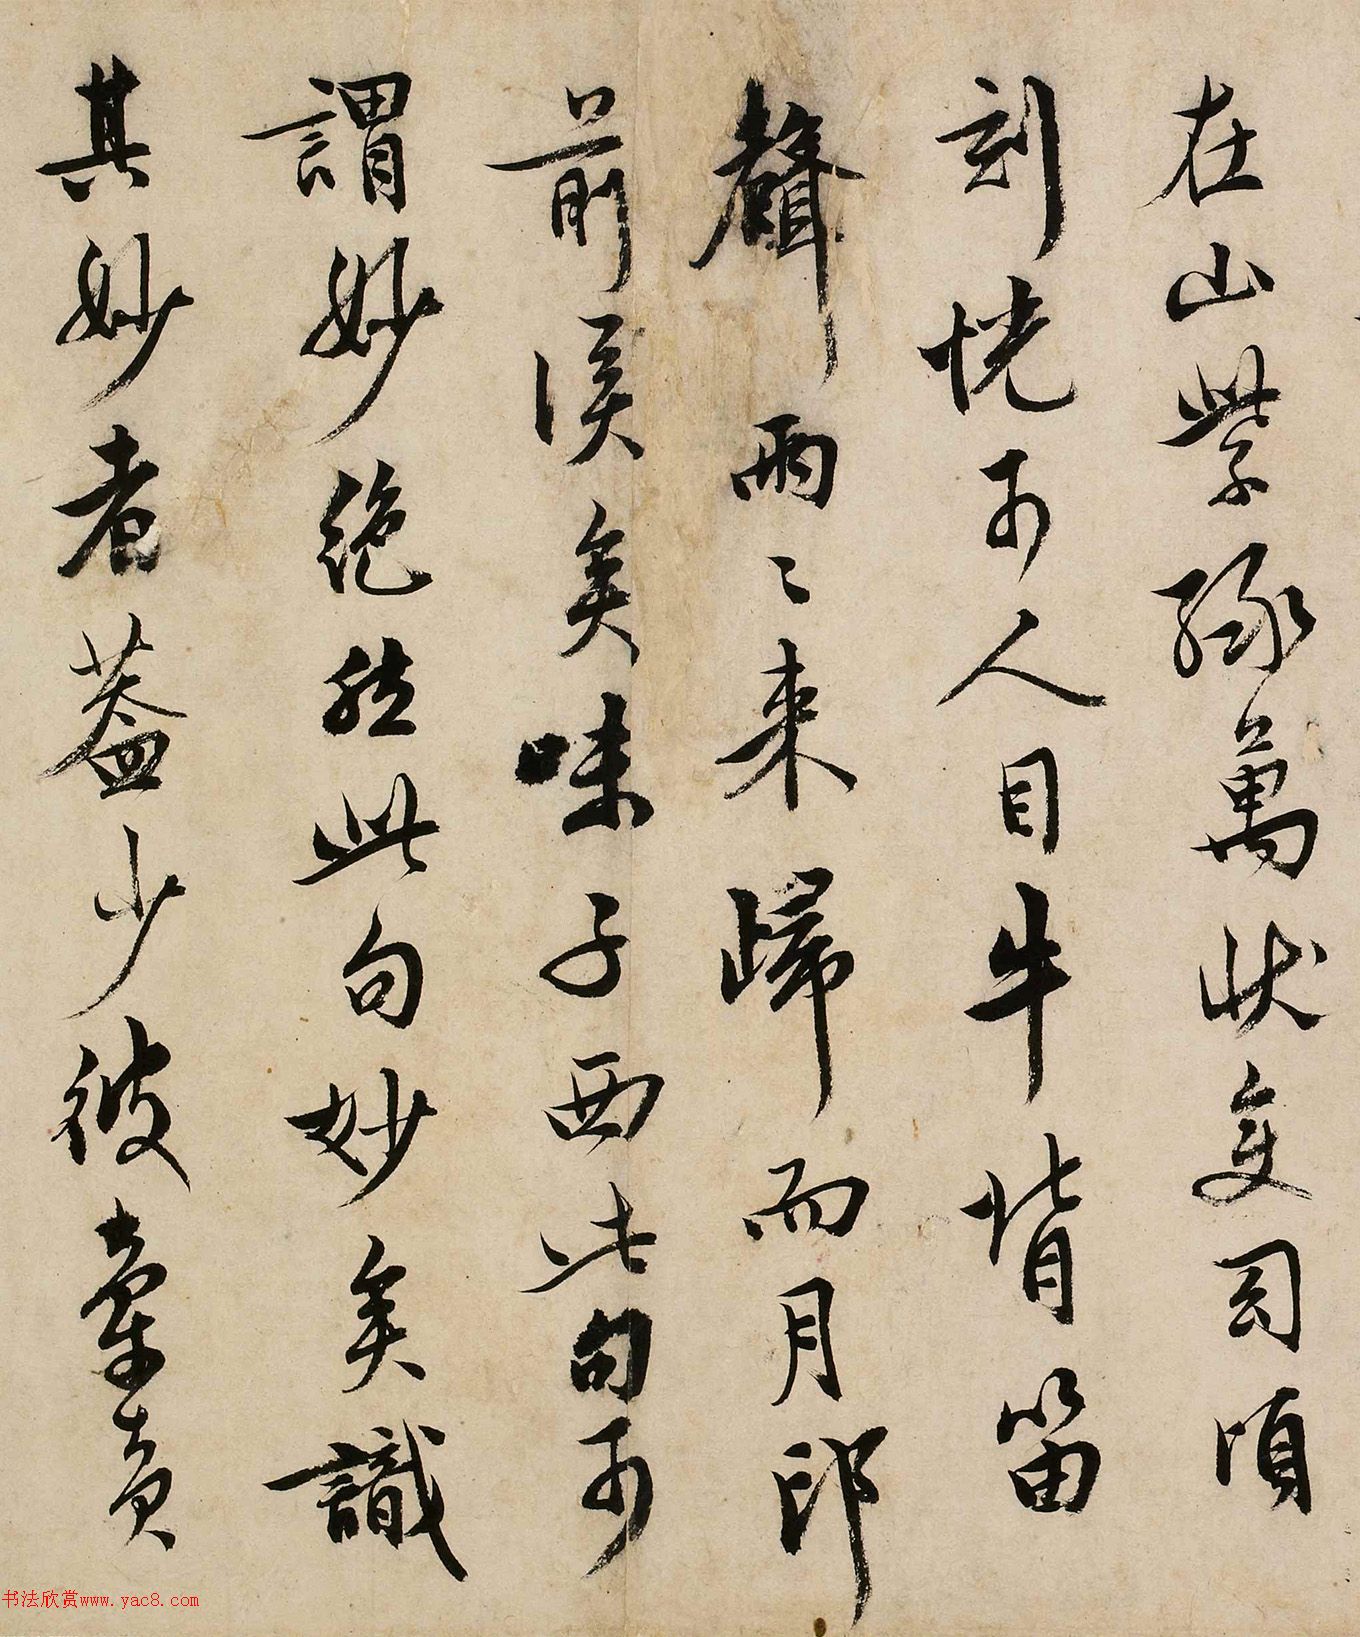 在山紫緑萬狀變幻頃
刻恍可人目牛背笛
聲兩〻來歸而月印
前溪矣味子西此句可
謂妙絶然此句妙矣識
其妙者盖少彼牽黄
书法欣赏www.yac8.com